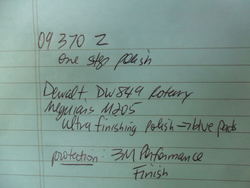 09 370 Z
one step polish
Dewalt DW849 Rotary
Meguiars M205
ultra finishing polish → blue pads
protection: 3M Performance
Finish